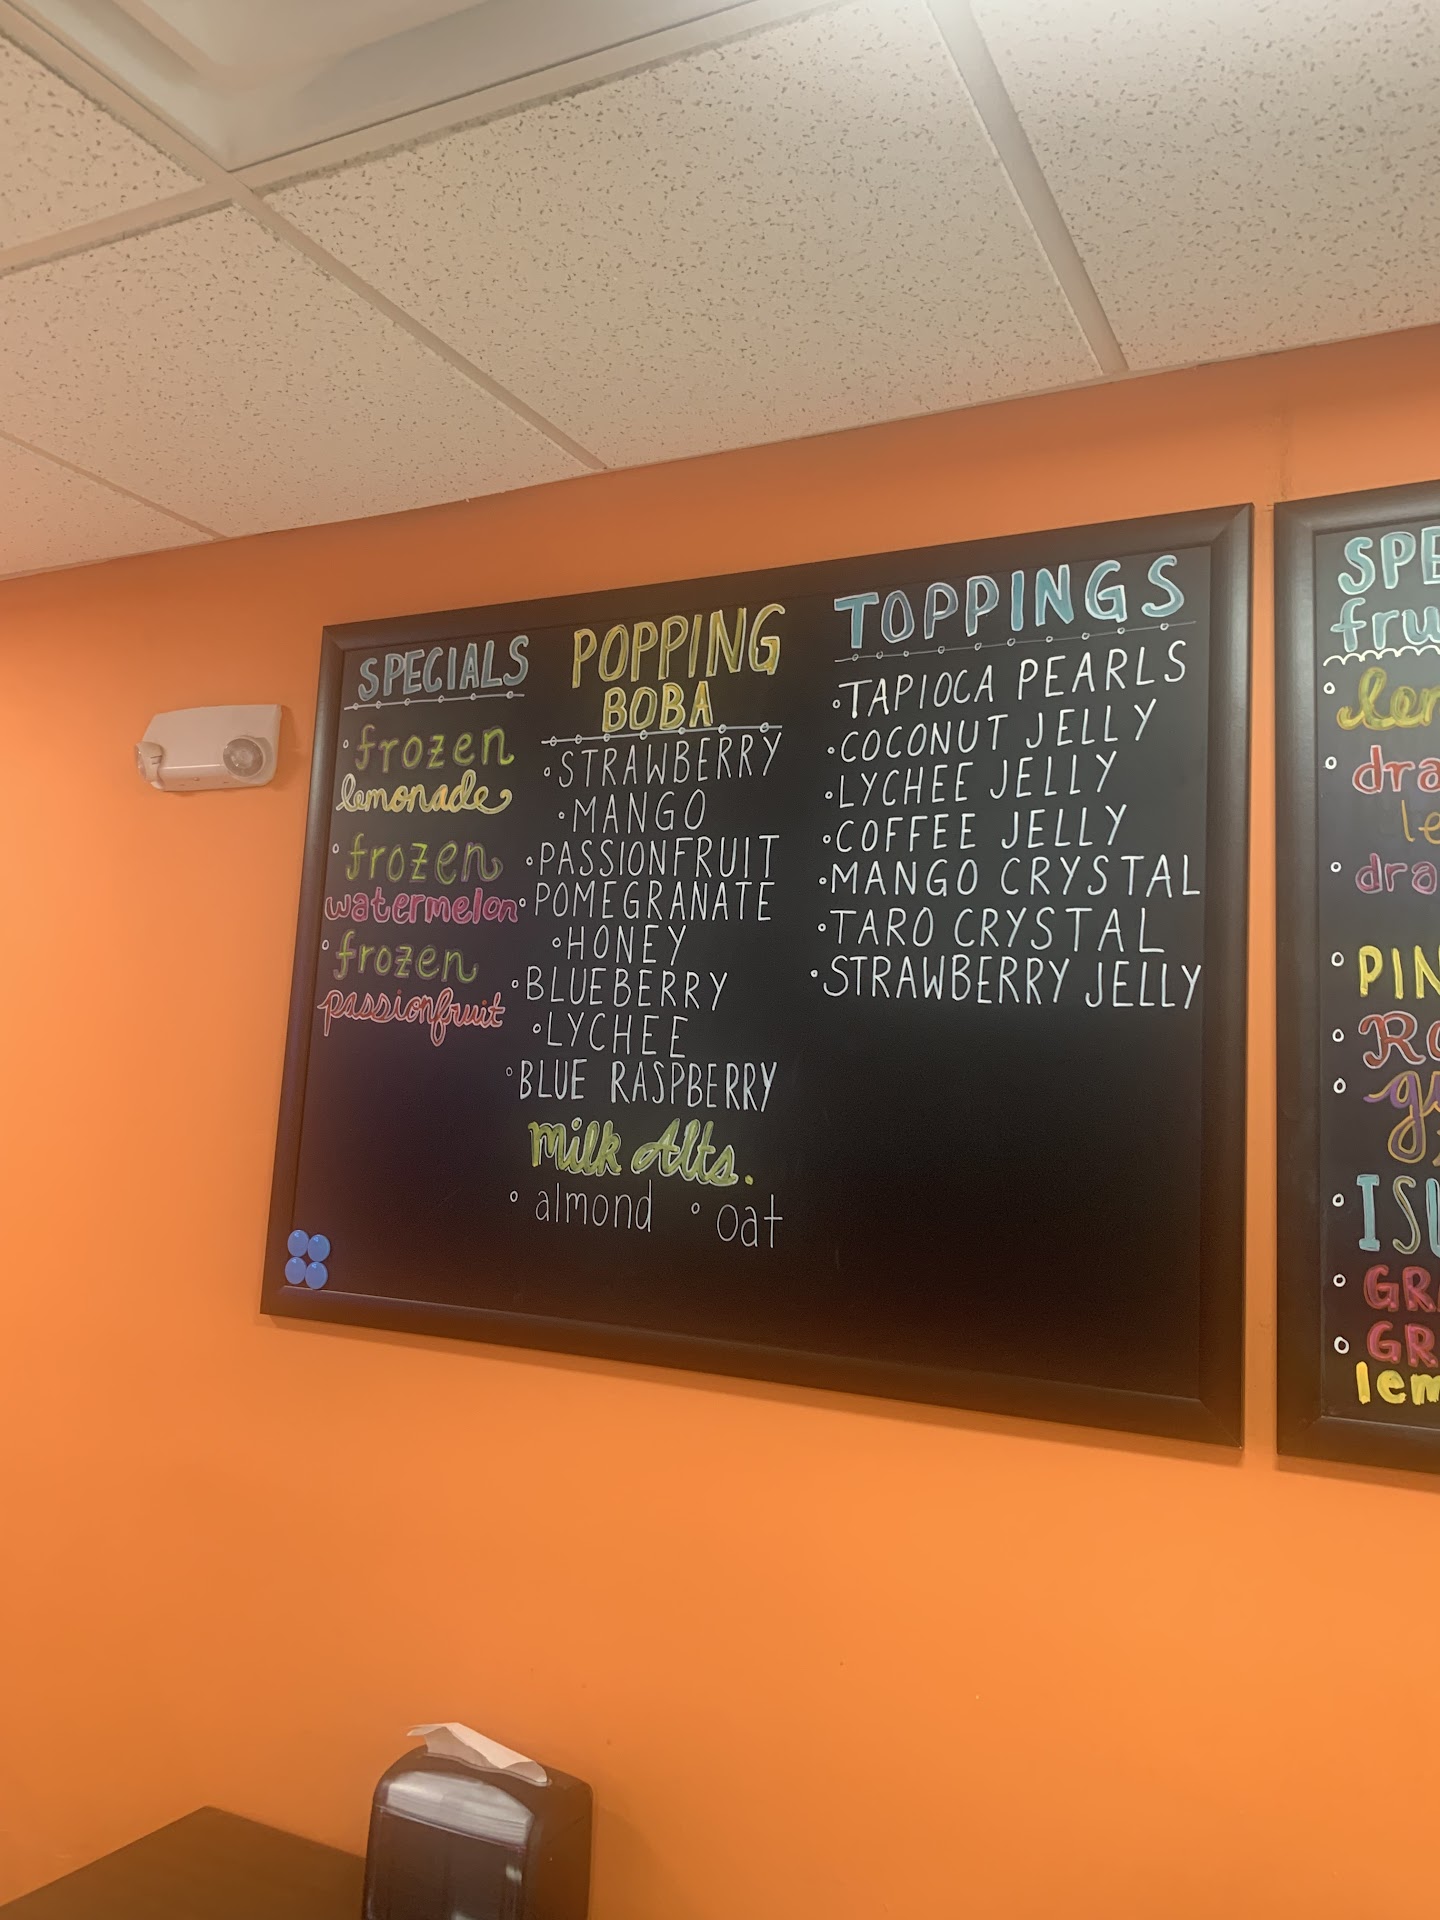 SPECIALS
• frozen
lemonade
• frozen
watermelon
• frozen
passionfruit
POPPING
BOBA
• STRAWBERRY
• MANGO
• PASSIONFRUIT
• POMEGRANATE
• HONEY
• BLUEBERRY
• LYCHEE
• BLUE RASPBERRY
Milk Alts.
• almond • oat
TOPPINGS
• TAPIOCA PEARLS
• COCONUT JELLY
• LYCHEE JELLY
• COFFEE JELLY
• MANGO CRYSTAL
• TARO CRYSTAL
• STRAWBERRY JELLY